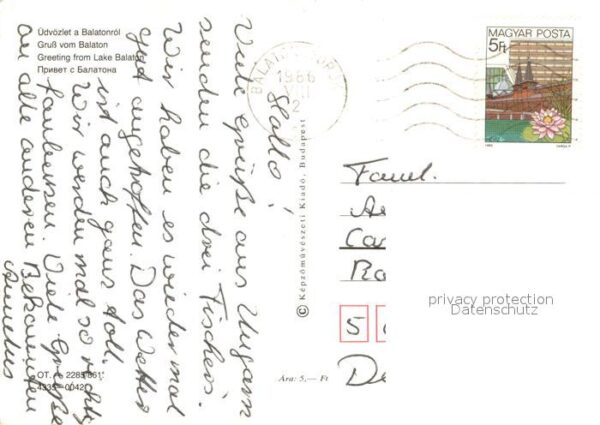 Üdvözlet a Balatonról
Gruß vom Balaton
Greeting from Lake Balaton
Привет с Балатона
Hallo!
Viele Grüße aus Ungarn
senden die drei Fischers.
Wir haben es wieder mal
gut angetroffen. Das Wetter
ist auch ganz toll.
Wir werden mal so richtig
faulenzen. Viele Grüße
an alle anderen Bekannten
OT. 2285 861
4335 0042
Ára: 5,— Ft
© Képzőművészeti Kiadó, Budapest
1986
VII
2
MAGYAR POSTA
5Ft
Faml.
Ca
5
De
privacy protection
Datenschutz